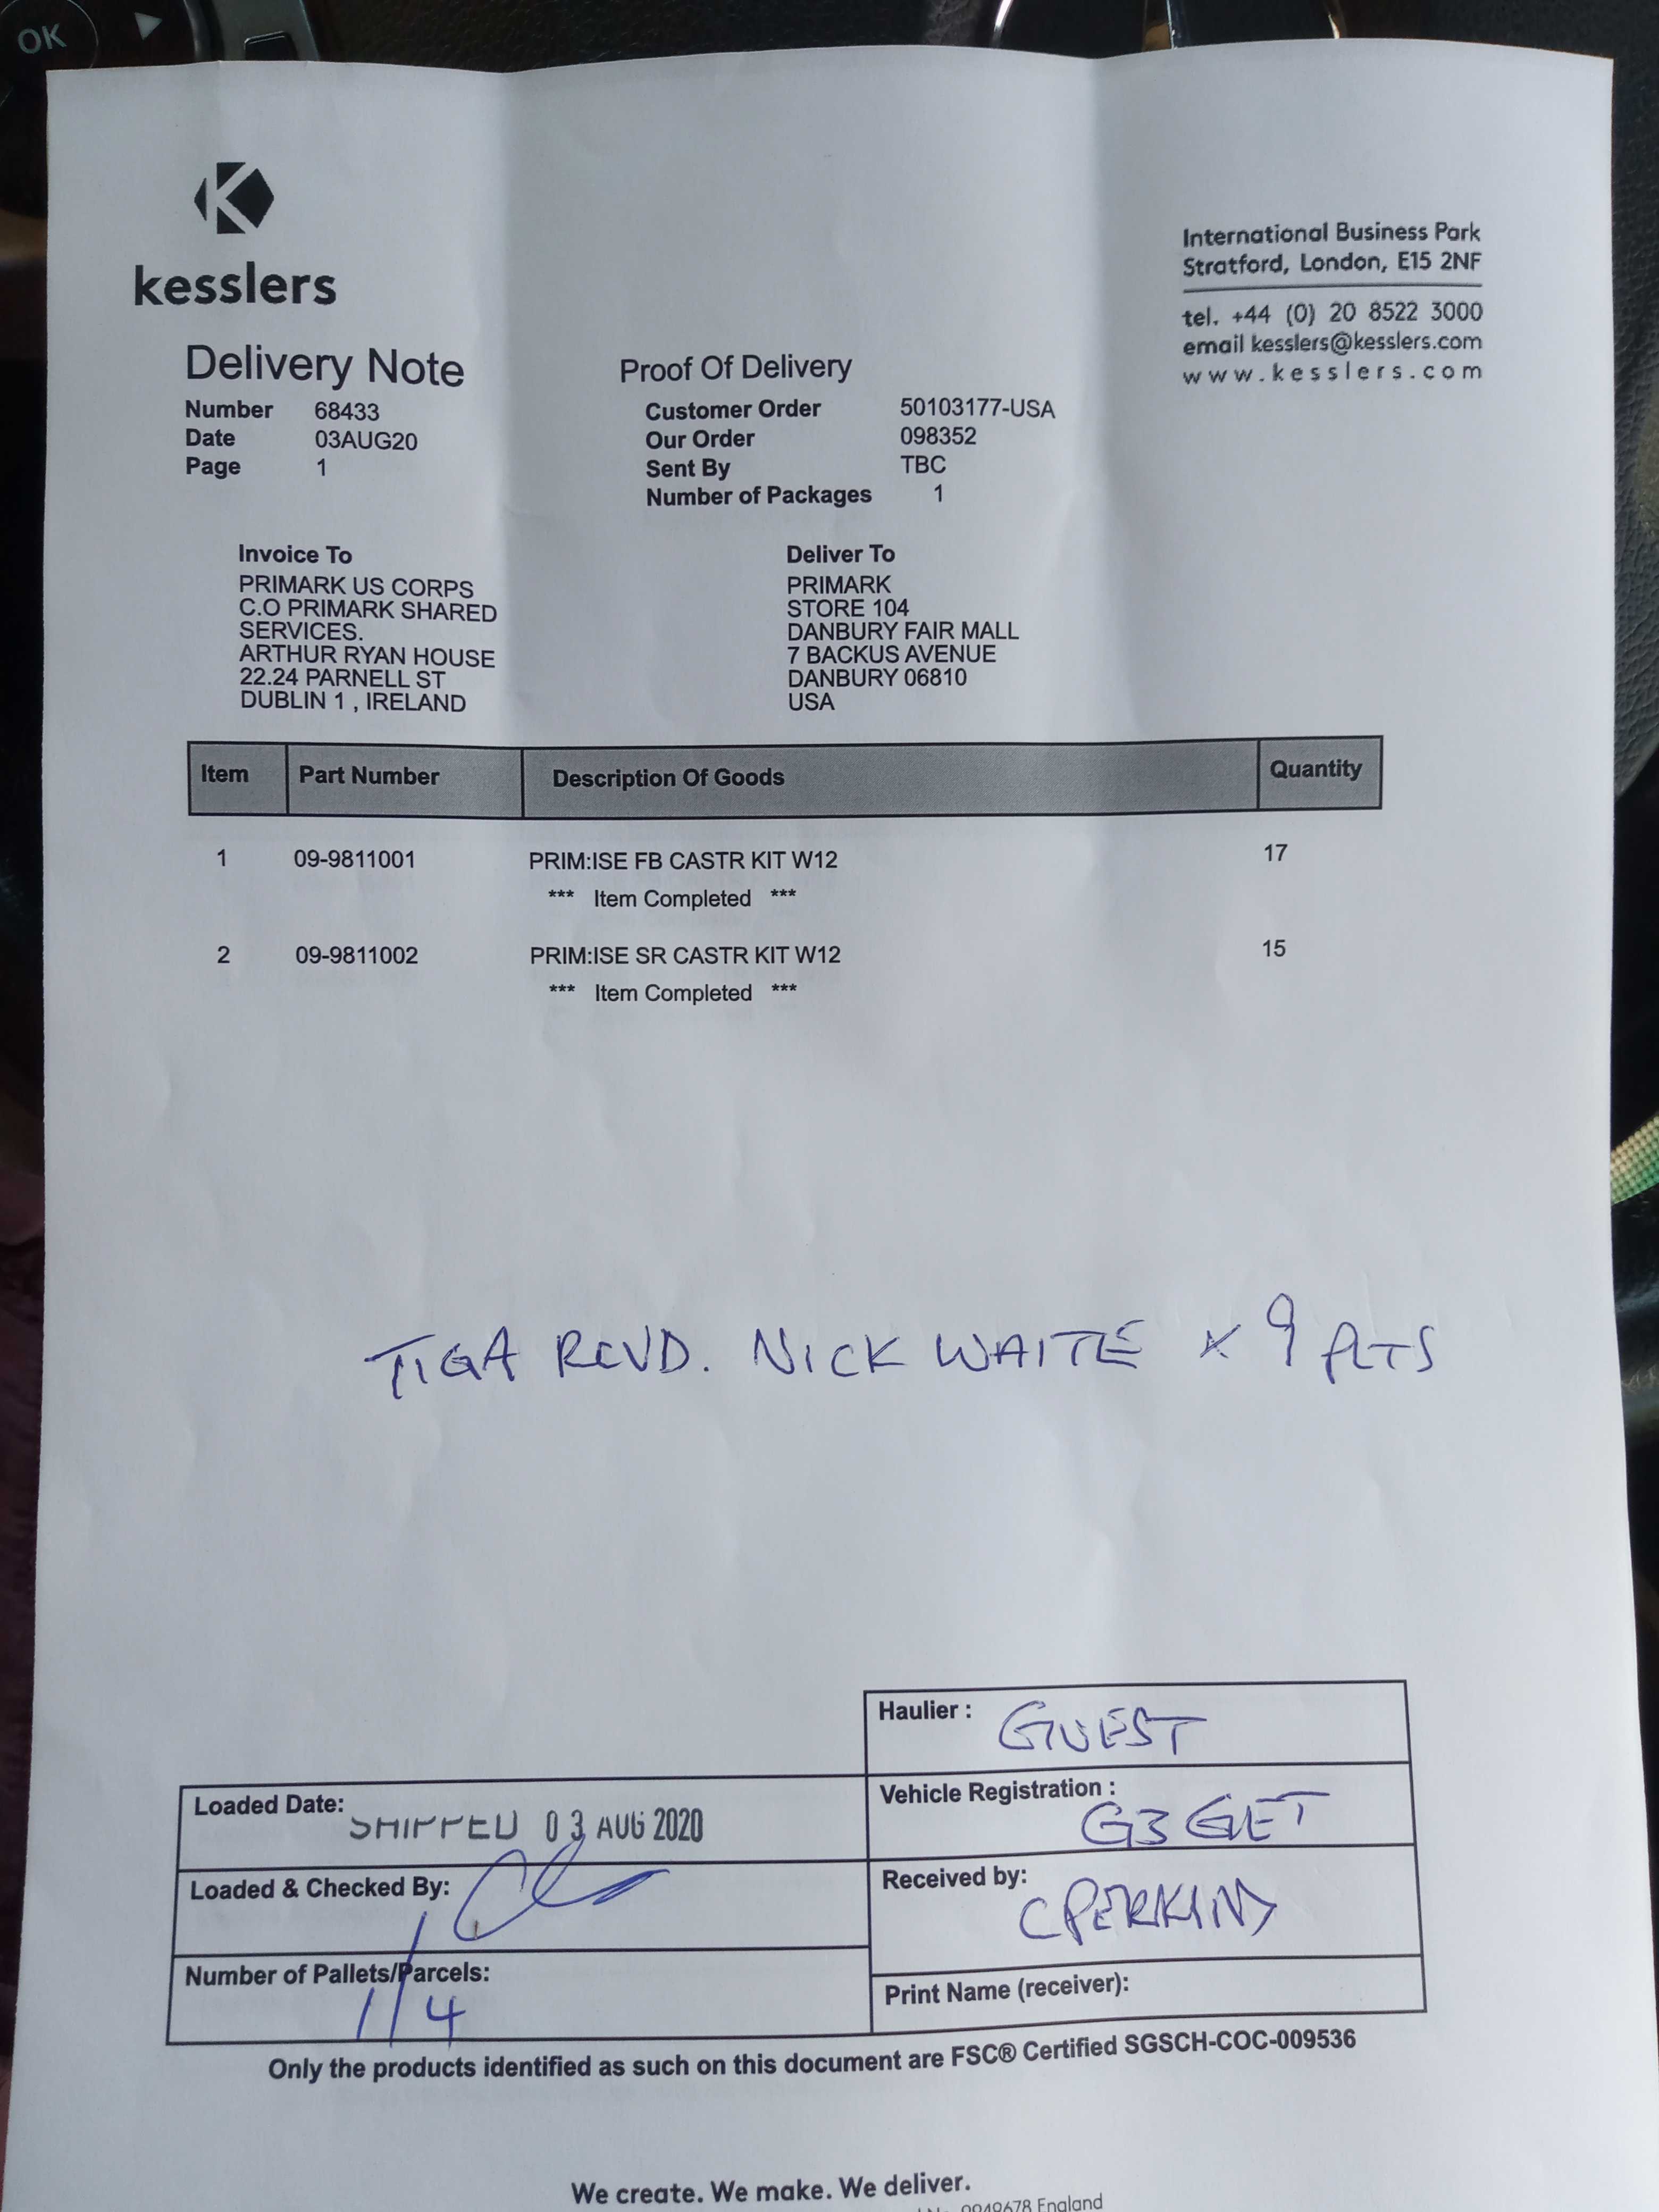 OK
kesslers
International Business Park
Stratford, London, E15 2NF
tel. +44 (0) 20 8522 3000
email kesslers@kesslers.com
www.kesslers.com
Delivery Note
Number 68433
Date 03AUG20
Page 1
Proof Of Delivery
Customer Order 50103177-USA
Our Order 098352
Sent By TBC
Number of Packages 1
Invoice To
PRIMARK US CORPS
C.O PRIMARK SHARED
SERVICES.
ARTHUR RYAN HOUSE
22.24 PARNELL ST
DUBLIN 1 , IRELAND
Deliver To
PRIMARK
STORE 104
DANBURY FAIR MALL
7 BACKUS AVENUE
DANBURY 06810
USA
Item Part Number Description Of Goods Quantity
1 09-9811001 PRIM:ISE FB CASTR KIT W12 17
*** Item Completed ***
2 09-9811002 PRIM:ISE SR CASTR KIT W12 15
*** Item Completed ***
TIGA RCVD. NICK WAITE x 9 PLTS
Haulier : GUEST
Vehicle Registration : G3 GET
Received by: C PERKINS
Print Name (receiver):
Loaded Date: SHIPPED 03 AUG 2020
Loaded & Checked By:
Number of Pallets/Parcels: 1/4
Only the products identified as such on this document are FSC® Certified SGSCH-COC-009536
We create. We make. We deliver.
England